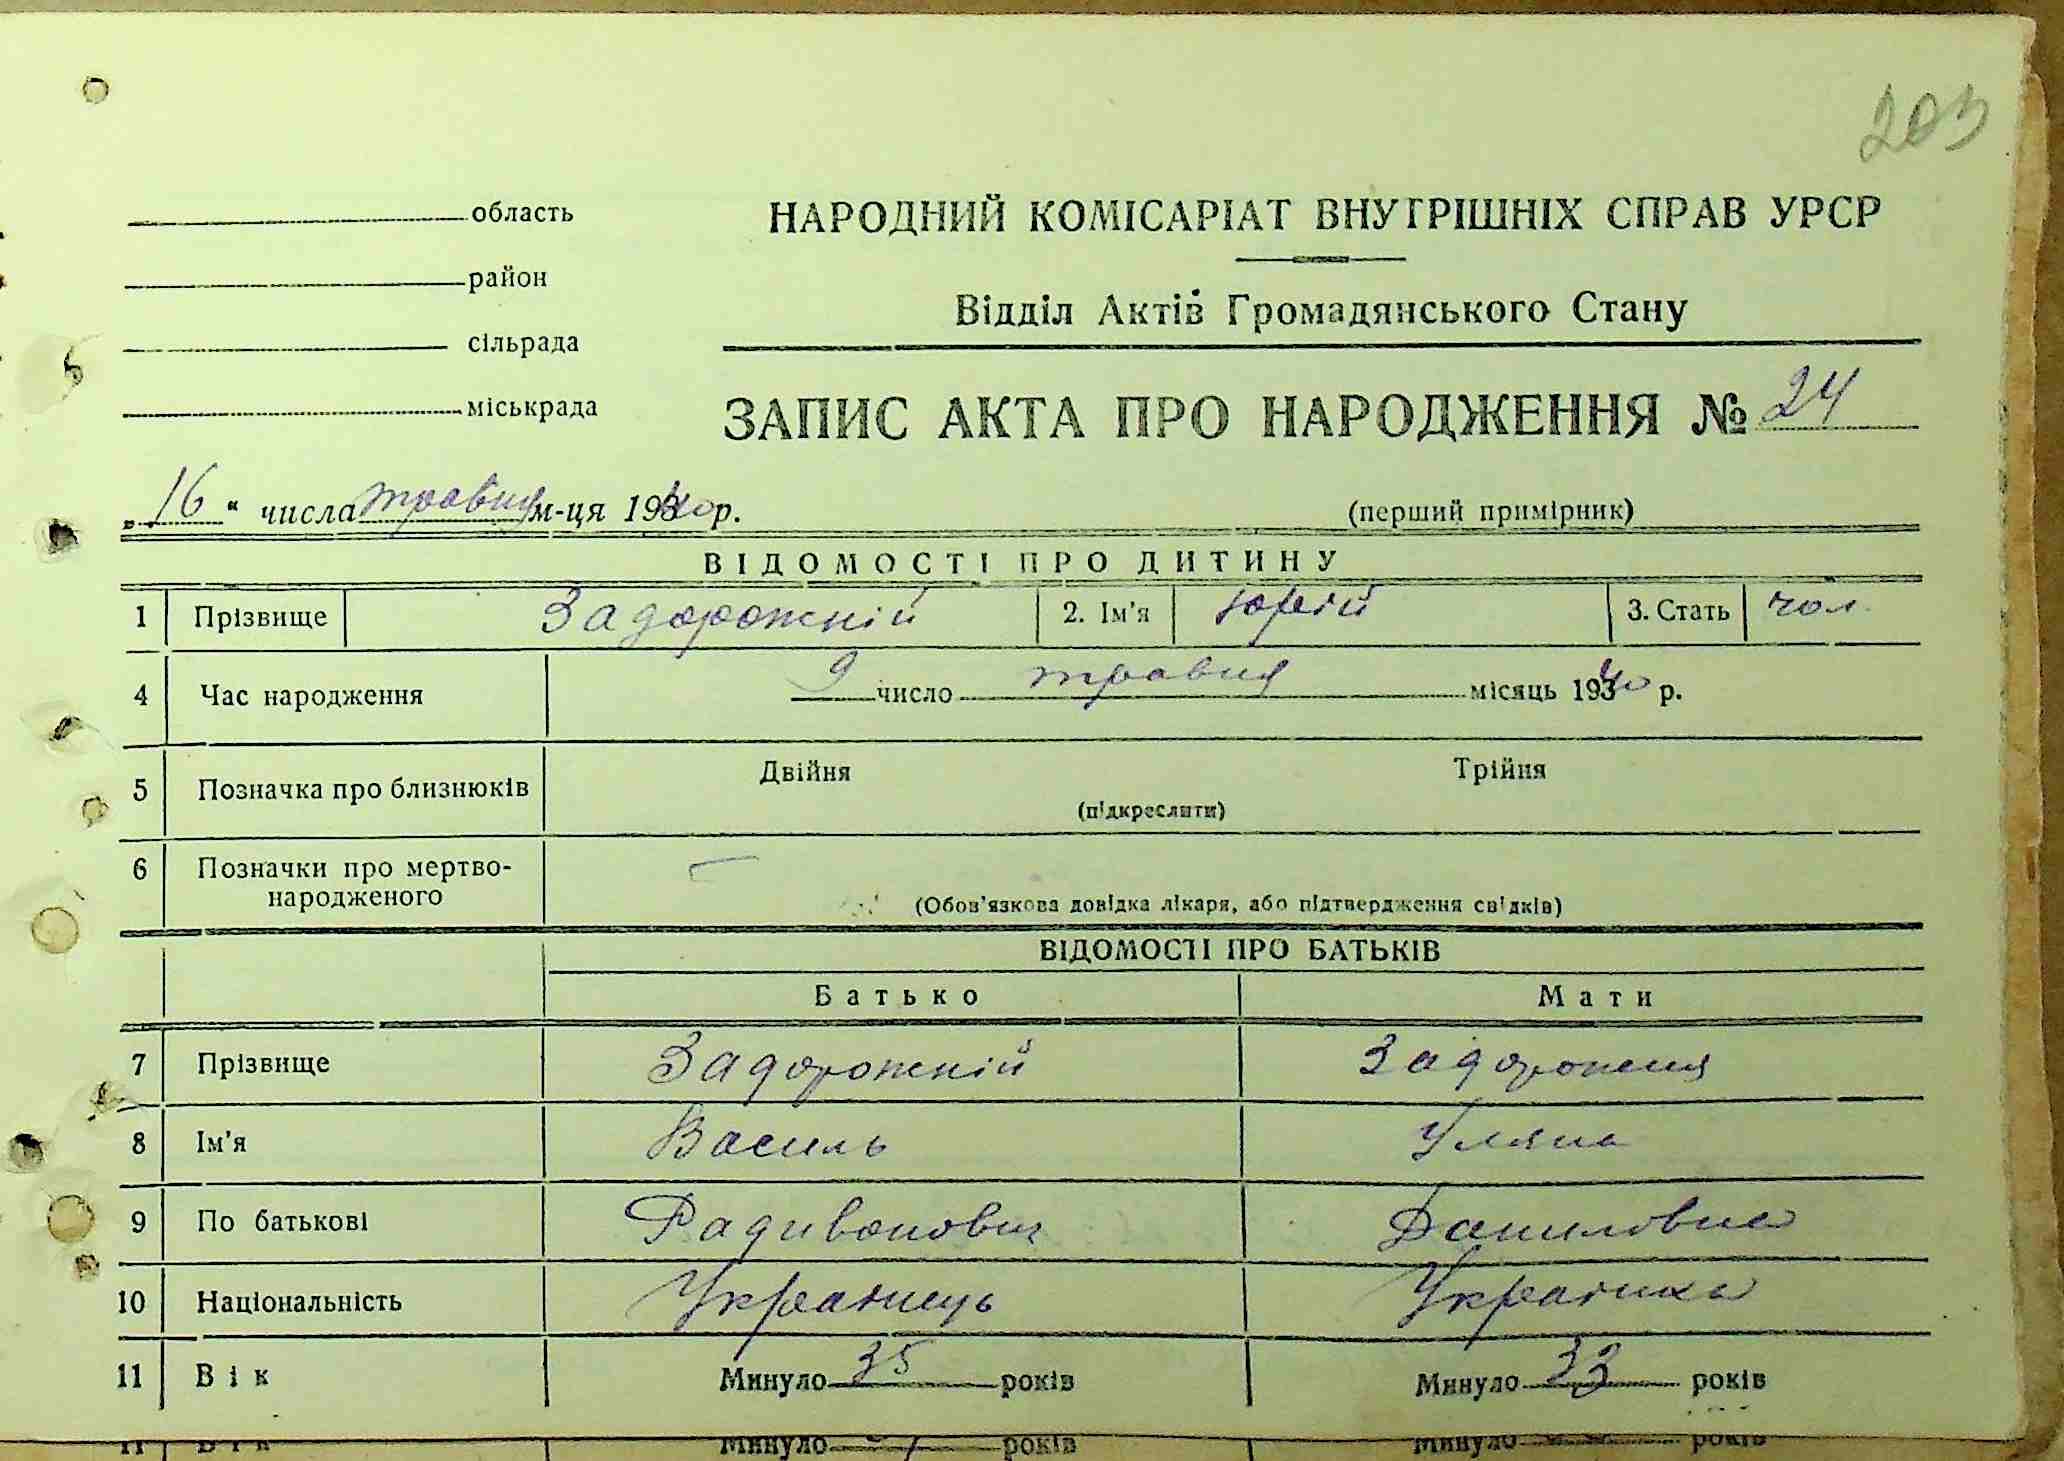 203
область
район
сільрада
міськрада
НАРОДНИЙ КОМІСАРІАТ ВНУТРІШНІХ СПРАВ УРСР
Відділ Актів Громадянського Стану
ЗАПИС АКТА ПРО НАРОДЖЕННЯ № 24
„16“ числа травня м-ця 1940 р.
(перший примірник)
ВІДОМОСТІ ПРО ДИТИНУ
1 Прізвище Задорожній 2. Ім'я Юрій 3. Стать чол.
4 Час народження 9 число травня місяць 1940 р.
5 Позначка про близнюків Двійня Трійня
(підкреслити)
6 Позначки про мертво-
народженого
(Обов'язкова довідка лікаря, або підтвердження свідків)
ВІДОМОСТІ ПРО БАТЬКІВ
Батько Мати
7 Прізвище Задорожній Задорожня
8 Ім'я Василь Уляна
9 По батькові Радивонович Даниловна
10 Національність Українець Українка
11 Вік Минуло 35 років Минуло 33 років
11 Вік Минуло років Минуло років